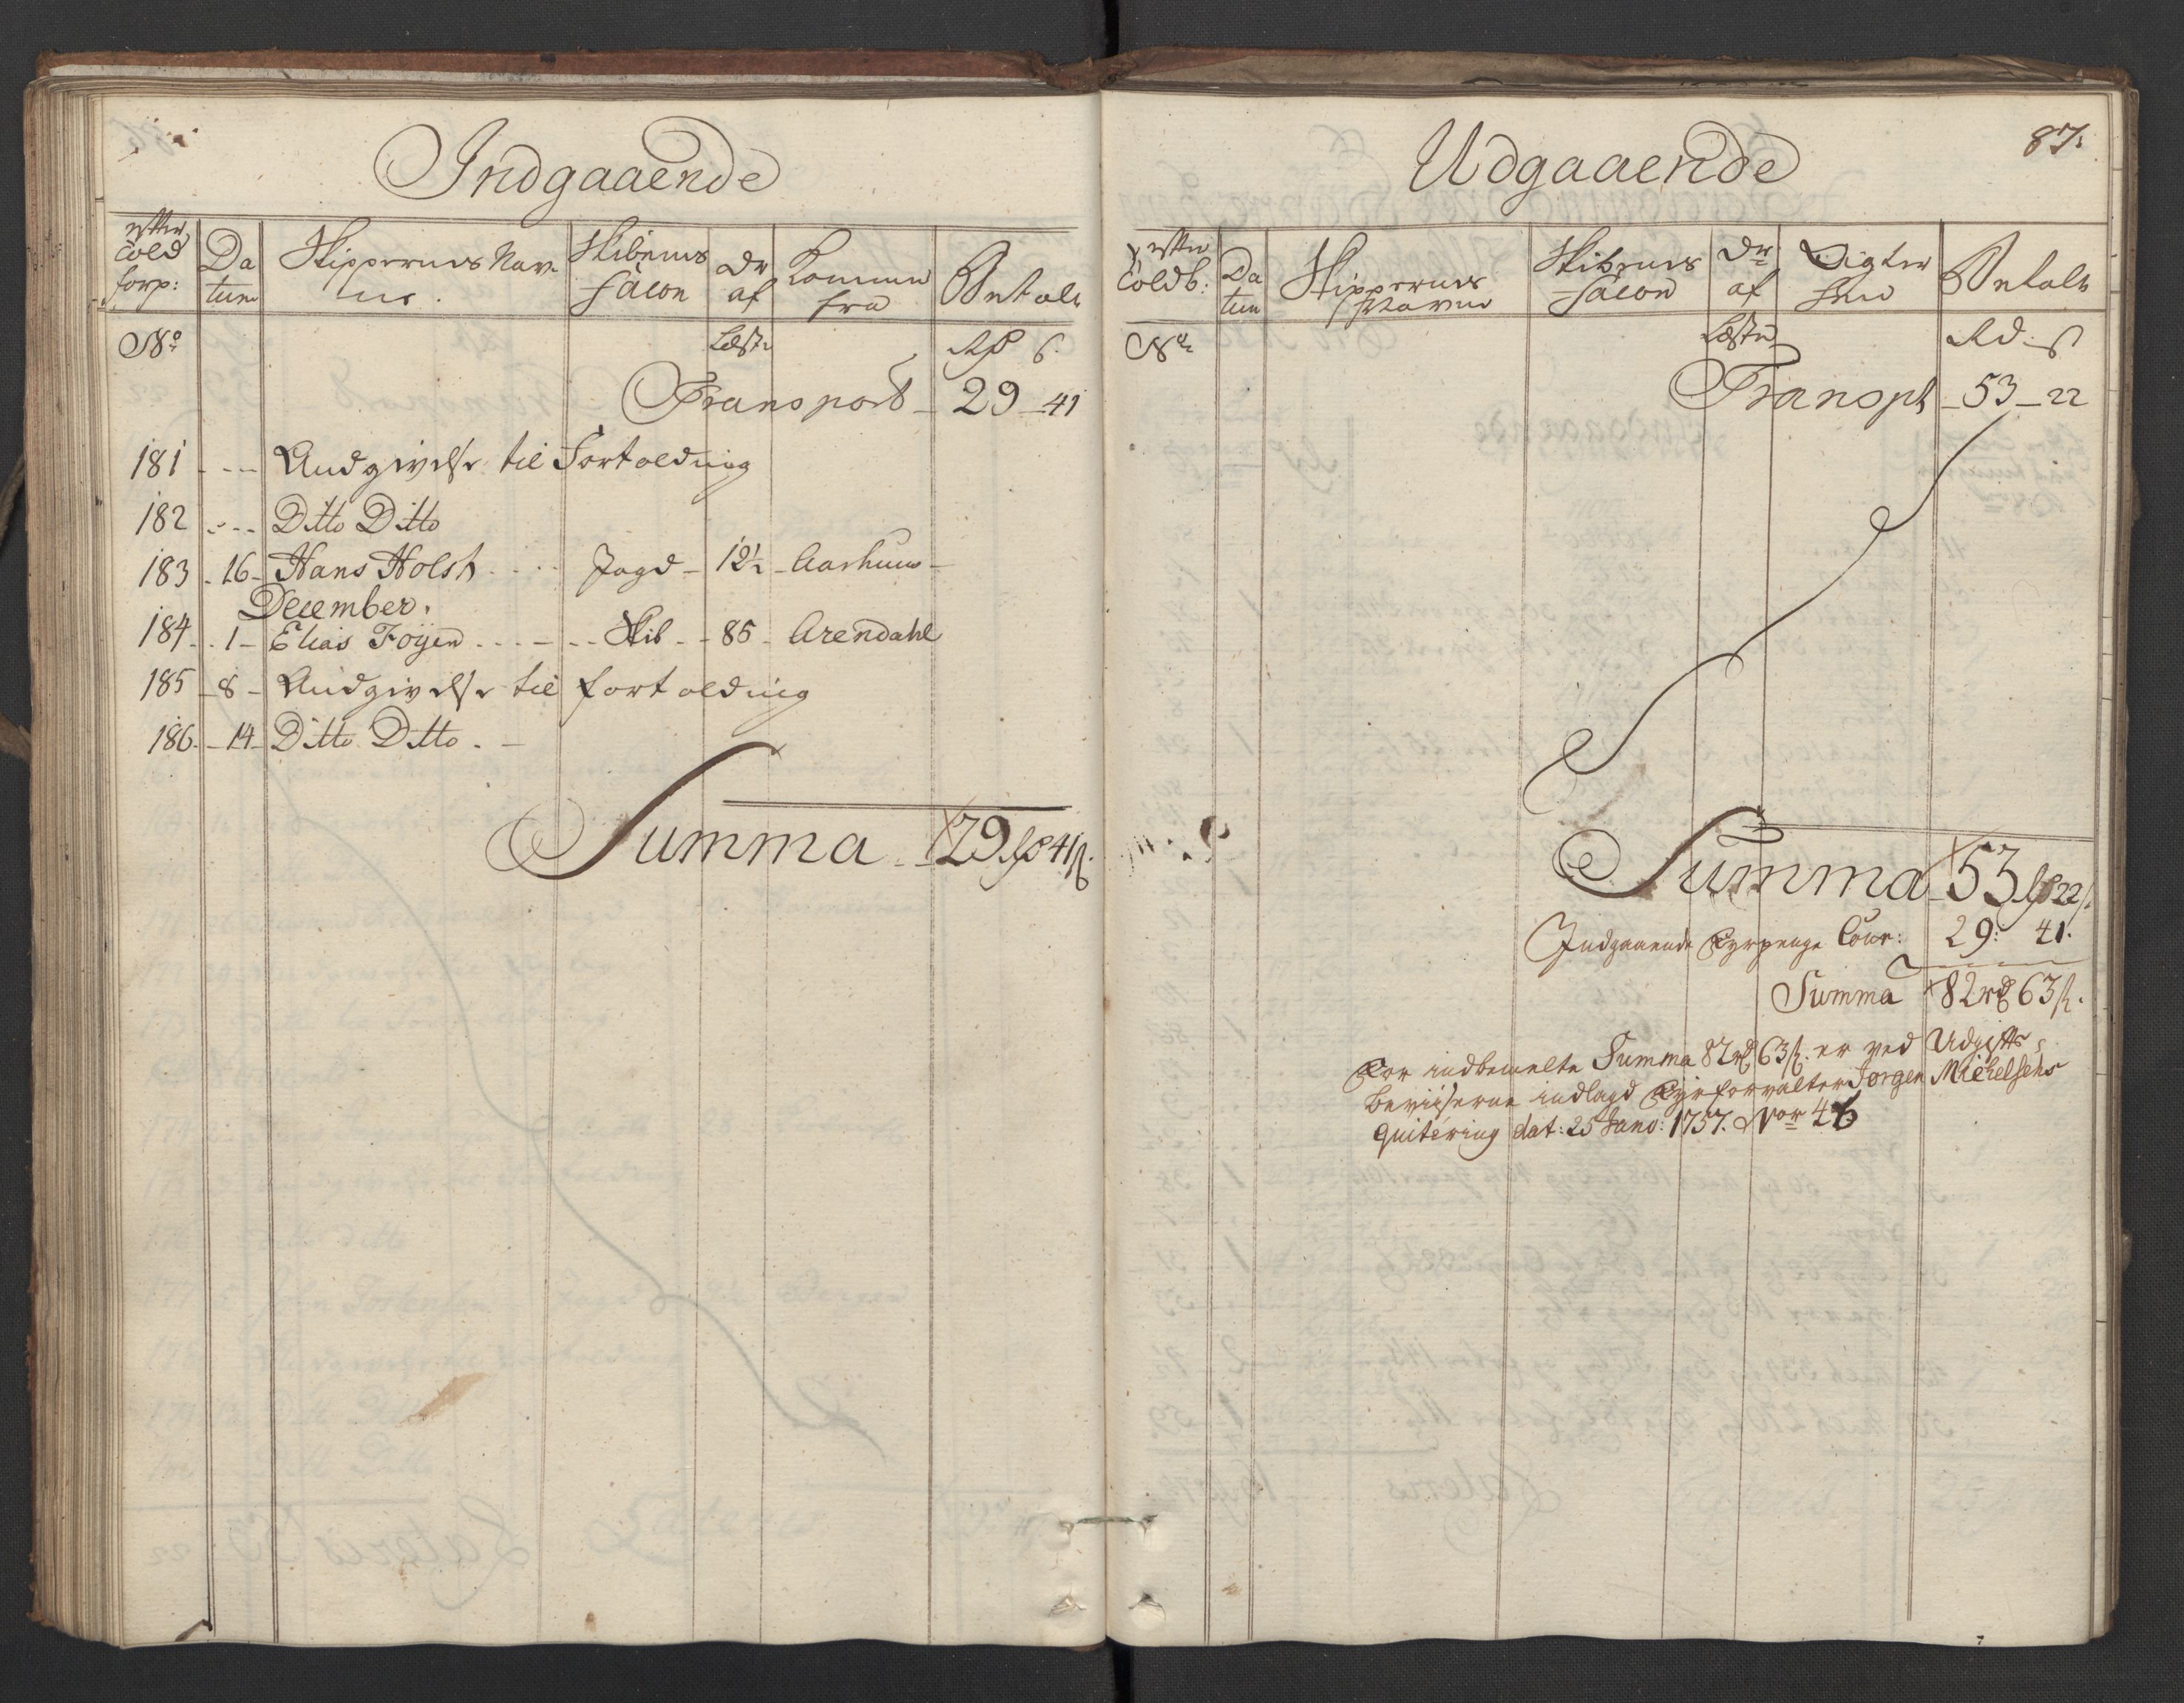 Indgaaende
efter
Told
forp:
Da
tum
Skippernes Nav-
ne.
Skibenes
façon
Dr
af
Komme
fra
Betale
No
Læster
Rd ß.
Transport 29 - 41
181 - - - Angivelse til Fortolding
182 - - - Ditto Ditto
183 - 16 - Hans Holst - - - Jagd - 12½ - Aarhuus -
December.
184 - 1 - Elias Foyen - - - - Skib - - 85 - Arendahl
185 - 8 - Angivelse til fortolding
186 - 14 - Ditto Ditto. -
Summa - 29 rd 41 ß.
Udgaaende
87.
efter
Toldb:
Da
tum
Skippernes
Navne
Skibenes
façon
Dr
af
Betale
No
Læster
Rd. ß
Transpt - 53 - 22
Summa 53 rd 22 ß.
Indgaaende Fyrpenge Cour: 29: 41.
Summa 82 rd 63 ß.
For indbemelte Summa 82 rd 63 ß. er ved Udgifts
Beviiserne indlagd Fyrforvalter Jørgen Michelsens
quitering dat: 25 Janv: 1757. Nor 46